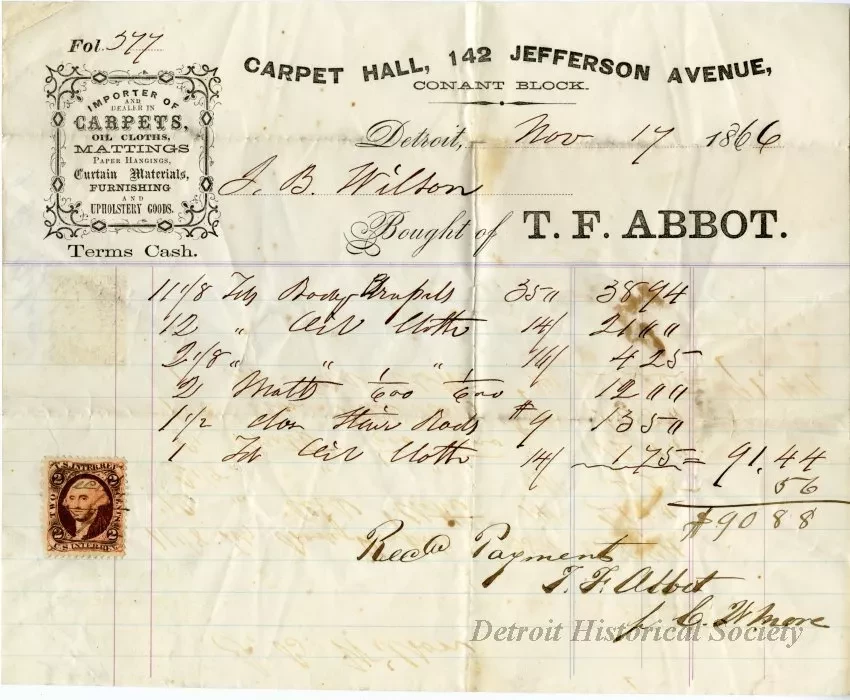 Fol. 377
CARPET HALL, 142 JEFFERSON AVENUE,
CONANT BLOCK.
IMPORTER OF
AND
DEALER IN
CARPETS,
OIL CLOTHS,
MATTINGS
PAPER HANGINGS,
Curtain Materials,
FURNISHING
AND
UPHOLSTERY GOODS.
Terms Cash.
Detroit, Nov 17 1866
J. B. Wilson
Bought of T. F. ABBOT.
11 1/8 Yds Body Brussels 35 " 38 94
12 " Oil Cloth 14/ 21 " "
2 1/8 " " " 4 25
2 Matts 1/600 1/600 12 " "
1 1/2 doz Stair Rods $9 13 5 "
1 Yd Oil Cloth 14/ 1 75 = 91.44
56
$90 88
Recd Payment
T. F. Abbot
C. W more
U.S. INTER. REV.
2 2
TWO CENTS
2 2
U.S. INTER. REV.
Detroit Historical Society